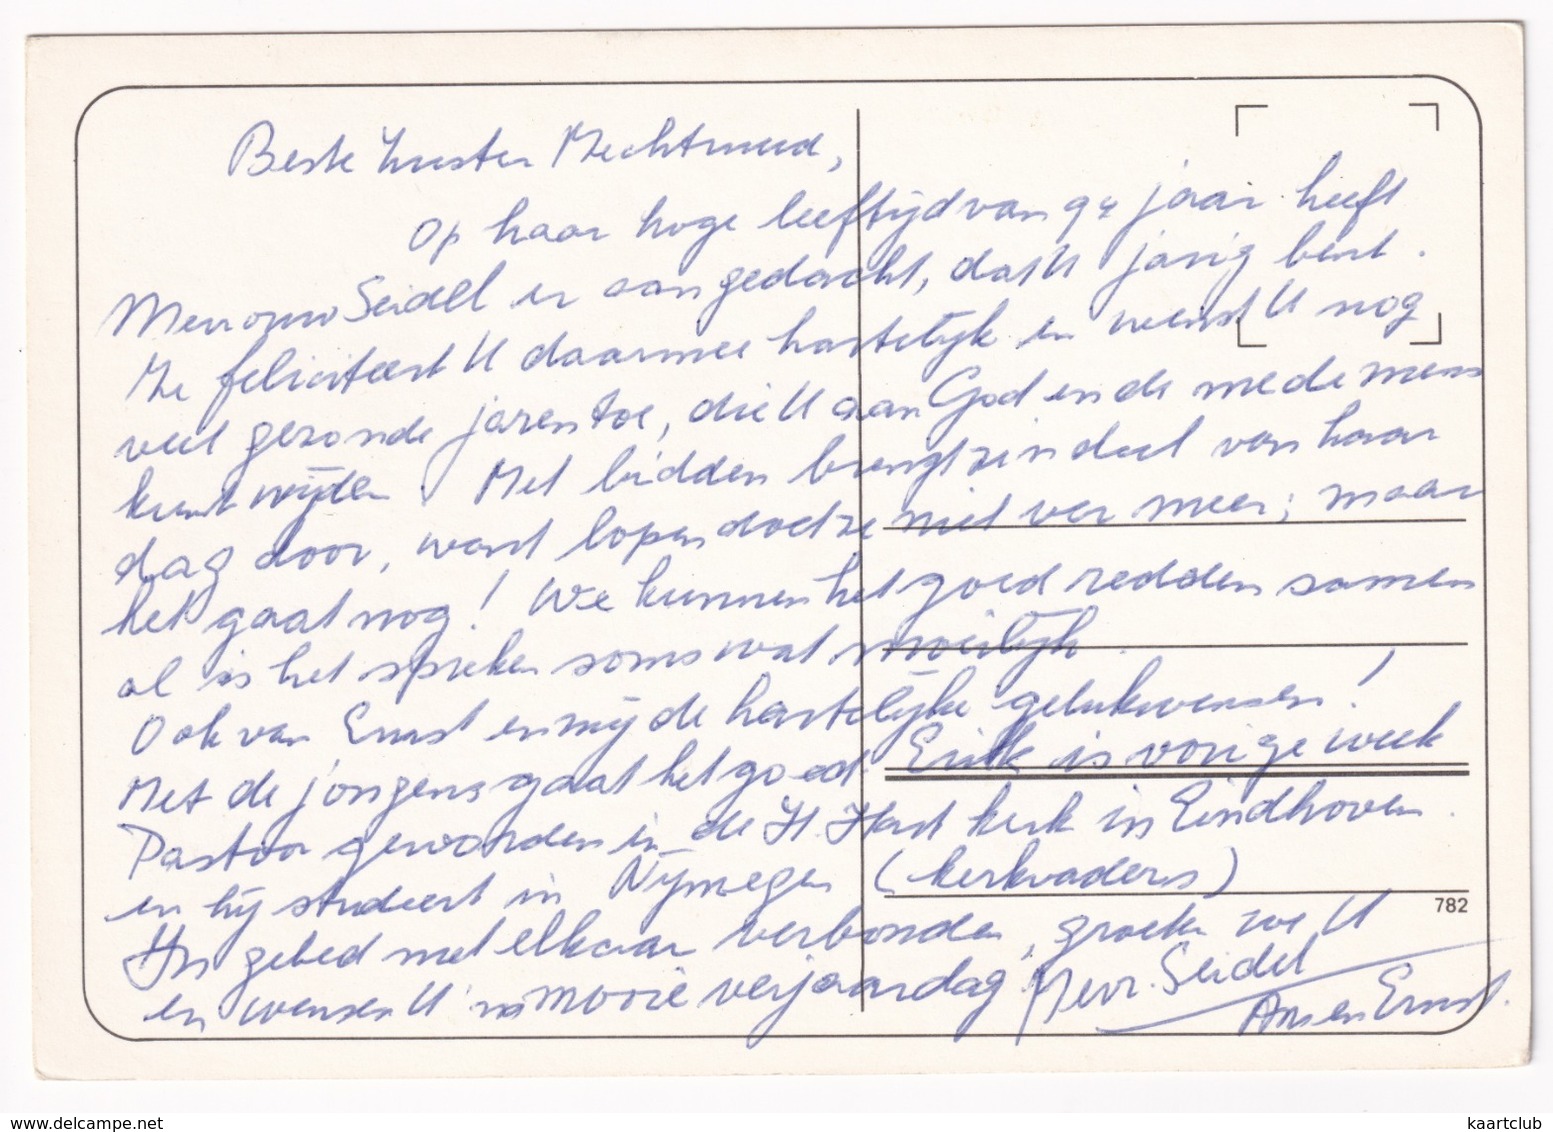 Beste Zuster Mechtruud,
Op haar hoge leeftijd van 94 jaar heeft
Mevrouw Seidel er aan gedacht, dat U jarig bent.
Ze feliciteert U daarmee hartelijk en wenst U nog
veel gezonde jaren toe, die U aan God en de mede mens
kunt wijden. Met bidden brengt ze 'n deel van haar
dag door, want lopen doet ze niet ver meer; maar
het gaat nog! We kunnen het goed redden samen
al is het spreken soms wat moeilijk.
Ook van Ernst en mij de hartelijke gelukwensen!
Met de jongens gaat het goed. Erik is vorige week
Pastoor geworden in de H. Hart kerk in Eindhoven.
en hij studeert in Nijmegen (kerkvaders)
In gebed met elkaar verbonden, groeten we U
en wensen U 'n mooie verjaardag. Mevr. Seidel
Ans en Ernst.
782
www.delcampe.net
kaartclub